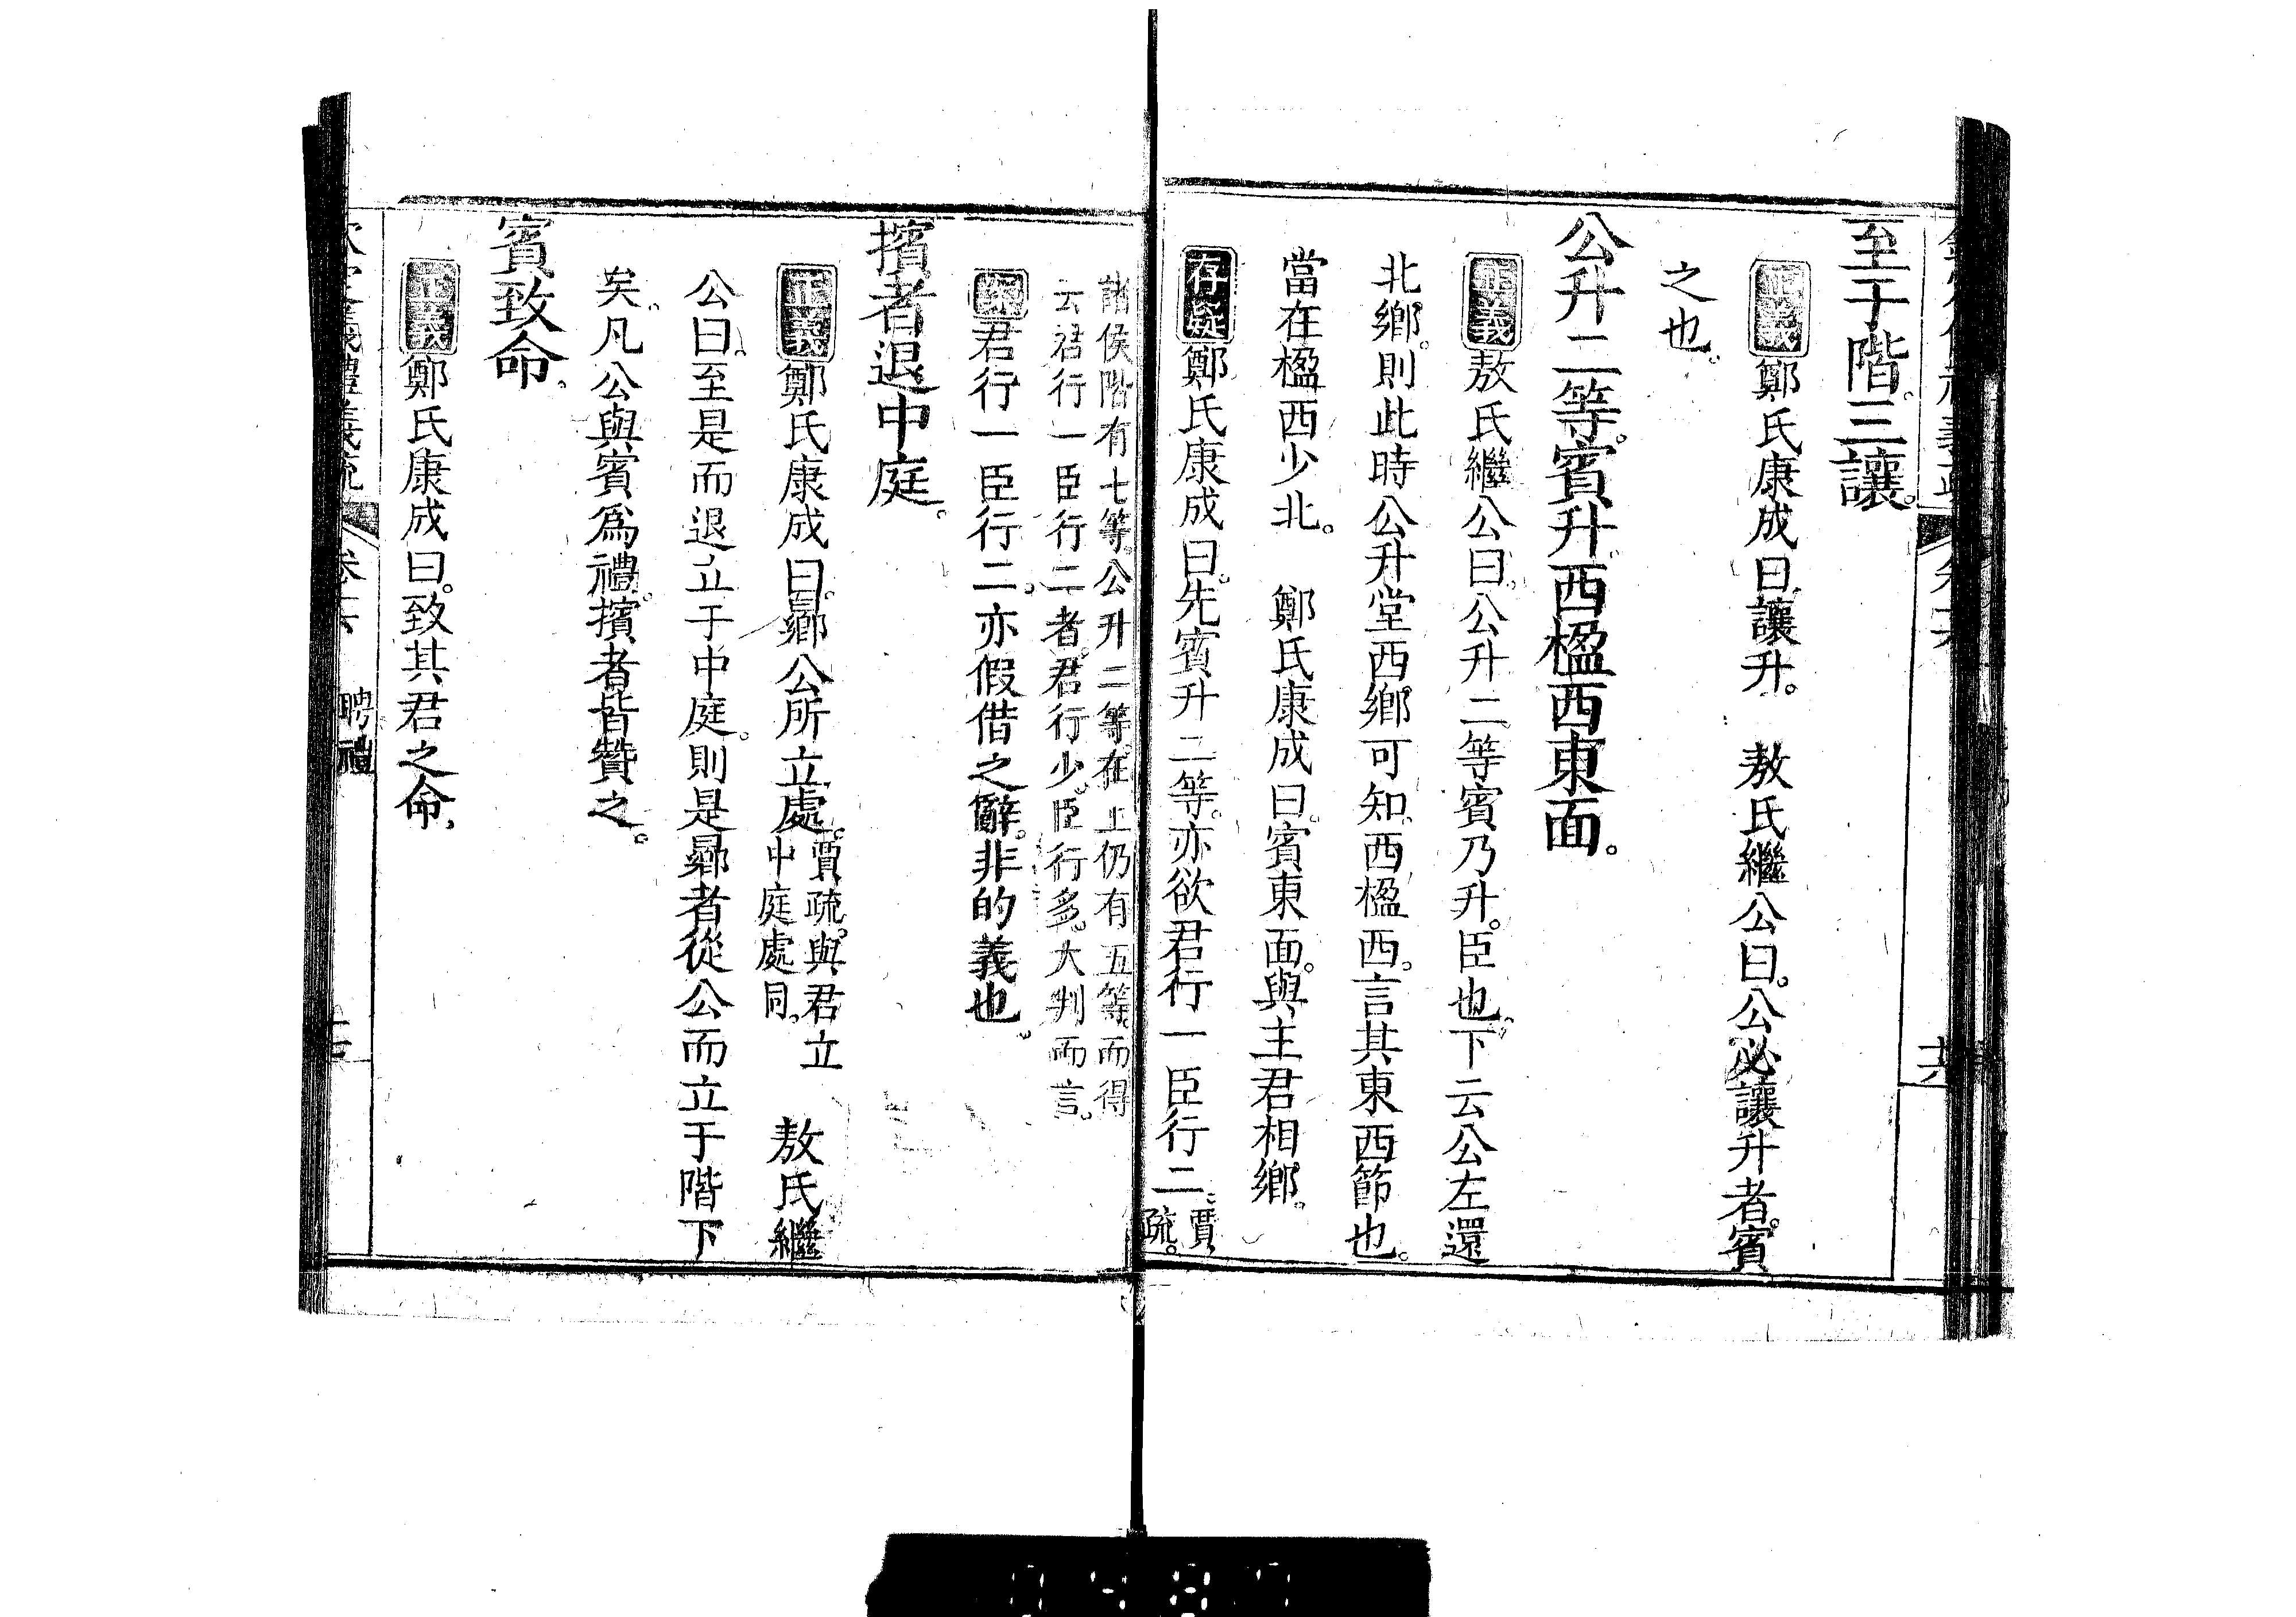 至于階。三讓。
正義鄭氏康成曰。讓升。　敖氏繼公曰。公必讓升者。賓
之也。
公升二等。賓升。西楹西東面。
正義敖氏繼公曰。公升二等。賓乃升。臣也。下云公左還
北鄉。則此時公升堂西鄉可知。西楹西。言其東西節也。
當在楹西少北。　鄭氏康成曰。賓東面。與主君相鄉。
存疑鄭氏康成曰。先賓升二等。亦欲君行一臣行二。賈
疏。
諸侯階有七等。公升二等。在上仍有五等。而得
云君行一臣行二者。君行少。臣行多。大判而言。
案君行一臣行二。亦假借之辭。非的義也。
擯者退中庭。
正義鄭氏康成曰。曏公所立處。賈疏。與君立
中庭處同。　敖氏繼
公曰。至是而退立于中庭。則是曏者從公而立于階下
矣。凡公與賓爲禮。擯者皆贊之。
賓致命。
正義鄭氏康成曰。致其君之命。
義禮義疏　卷　聘禮